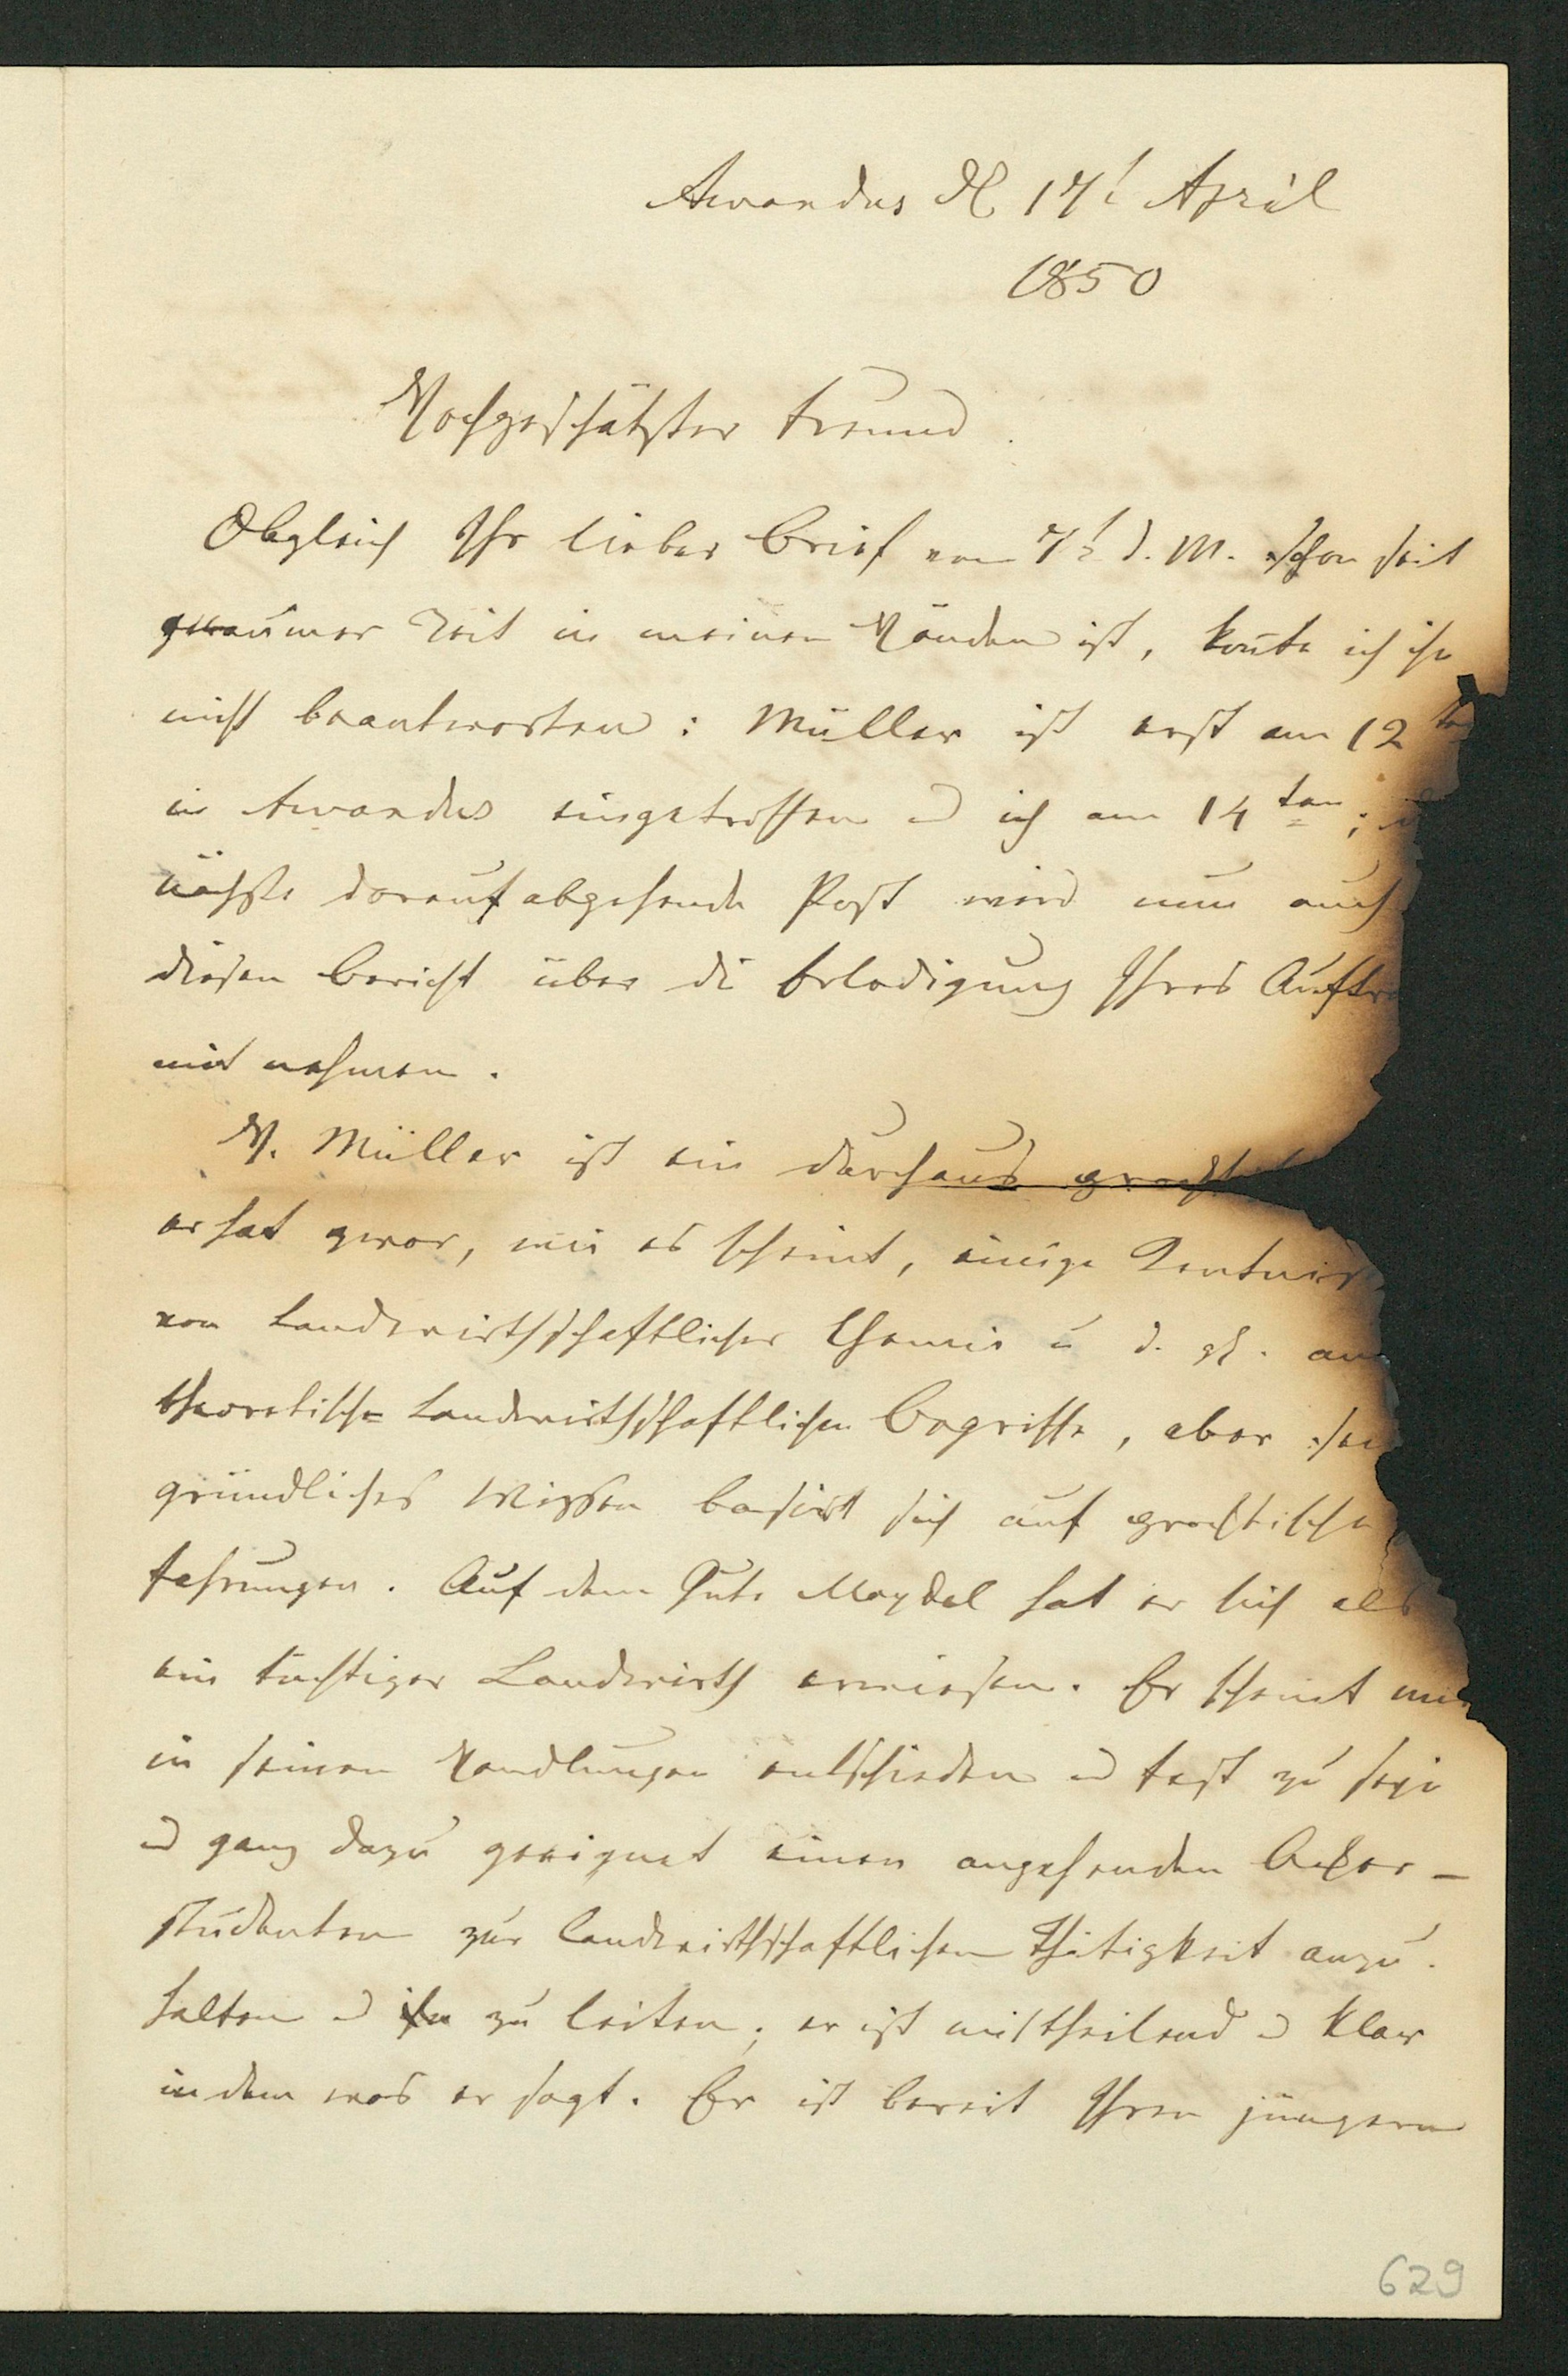 Awandus d 17t April
1850
Hochgeschätzter Freund.
Obgleich Ihr lieber Brief vom 7t d. M. schon seit
geraumer Zeit in meinen Händen ist, konte ich ihn
nicht beantworten: Müller ist erst am 12ten
in Awandus eingetroffen u ich am 14ten;
nächste darauf abgehende Post wird nun auch
diesen Bericht über die Erledigung Ihres Auftra
mit nehmen.
H. Müller ist ein durchaus prakti
er hat zwar, wie es scheint, einige Kentnis
von Landwirthschaftlicher Chemie u d. gl. an
theoretische Landwirthschaftlichen Begriffe, aber sei
gründliches Wissen basirt sich auf practische
fahrungen. Auf dem Gute Maydel hat er sich als
ein tüchtiger Landwirth erwiesen. Er scheint mir
in seinen Handlungen entschieden u fest zu seyn
u ganz dazu geeignet einen angehenden Acker-
studenten zur landwirthschaftlichen Thätigkeit anzu-
halten u ihn zu leiten; er ist mittheilend u klar
in dem was er sagt. Er ist bereit Ihren jüngern
629